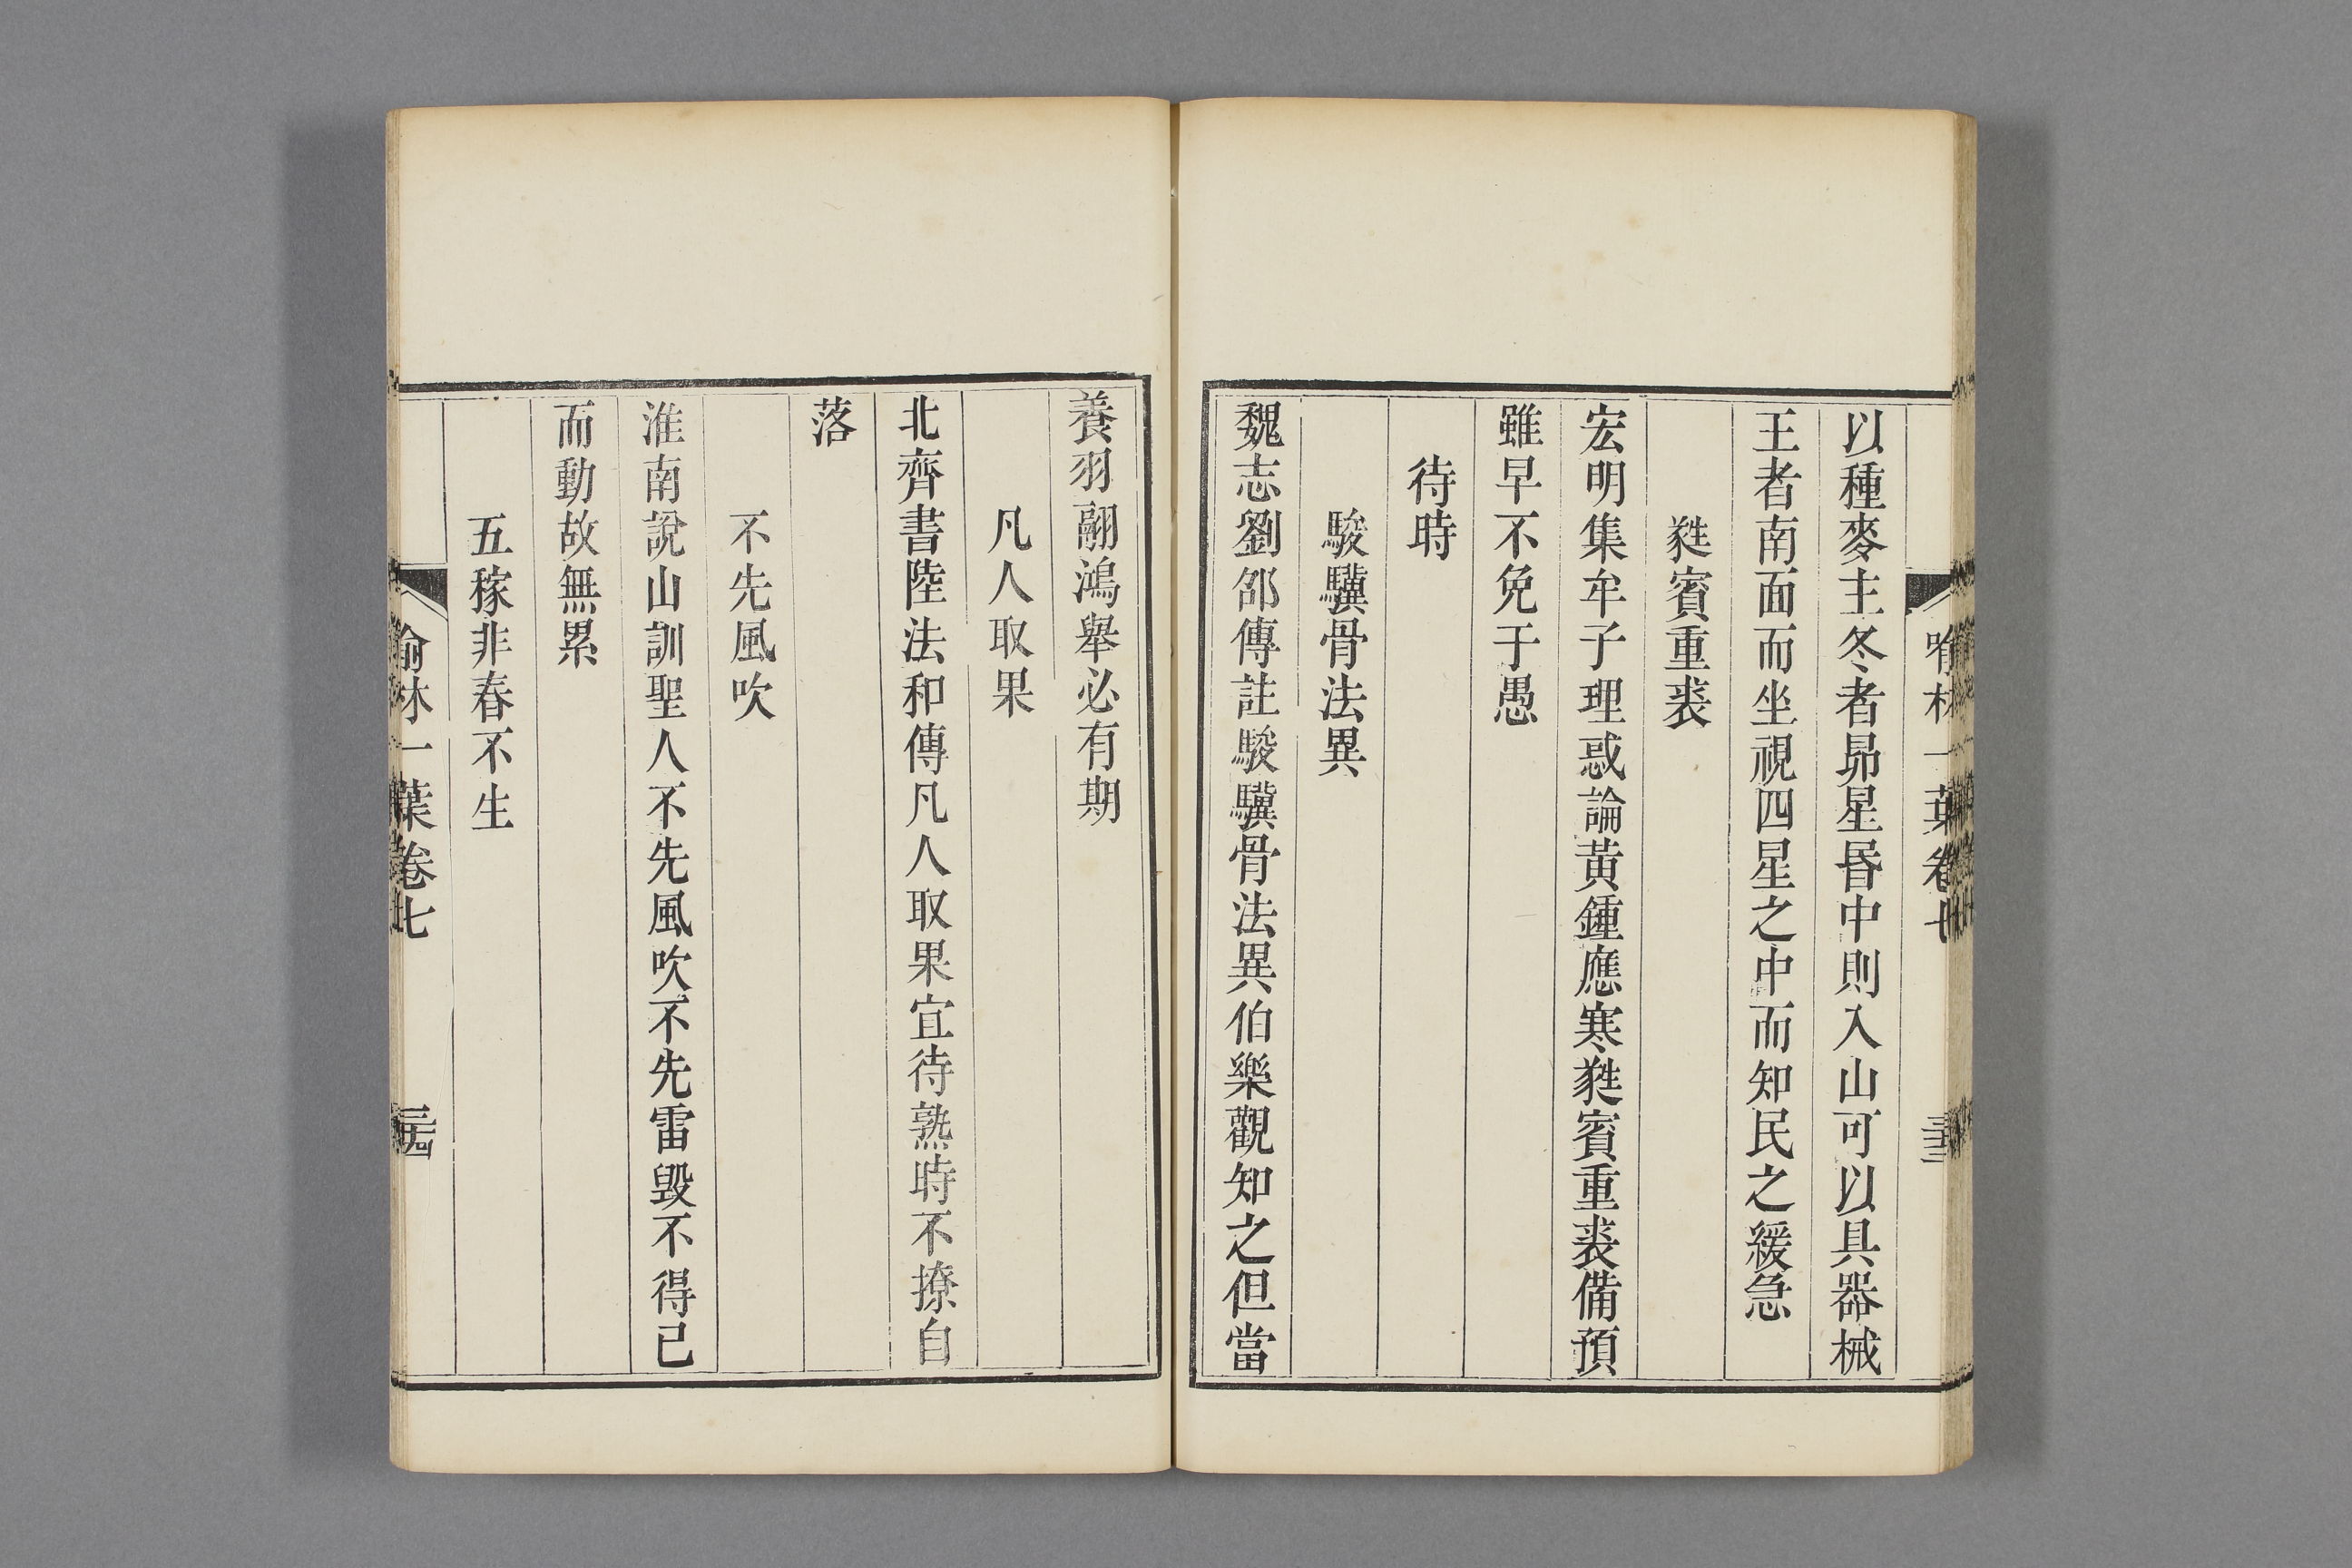 以種麥主冬者昴星昏中則入山可以具器械
王者南面而坐視四星之中而知民之緩急
蕤賓重裘
宏明集牟子理惑論黃鍾應寒蕤賓重裘備預
雖早不免于愚
待時
駿驥骨法異
魏志劉邵傳註駿驥骨法異伯樂觀知之但當
養羽翮鴻舉必有期
凡人取果
北齊書陸法和傳凡人取果宜待熟時不撩自
落
不先風吹
淮南說山訓聖人不先風吹不先雷毀不得已
而動故無累
五稼非春不生
喻林一葉卷七